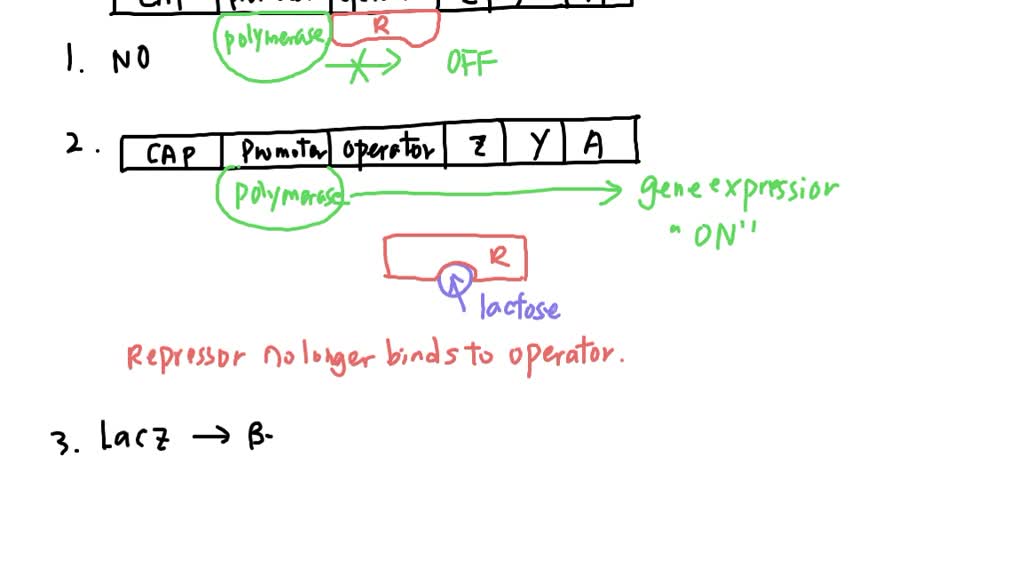 CAP
polymerase R
1. NO OFF
2. CAP Promoter operator Z Y A
polymerase gene expression
"ON"
R
lactose
Repressor no longer binds to operator.
3. Lac Z → β-